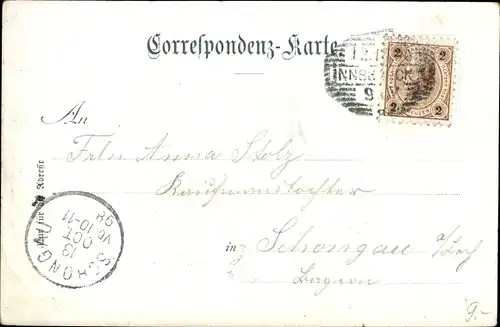 Correspondenz-Karte
12.1
INNSB CK
9
2 2
2 2
An
Frln Anna Stolz
Kaufmannstochter
in Schongau a/Lech
Bayern
Nur für die Adresse
SCHONGAU
13
OCT
Vo 10-11
98
9.-